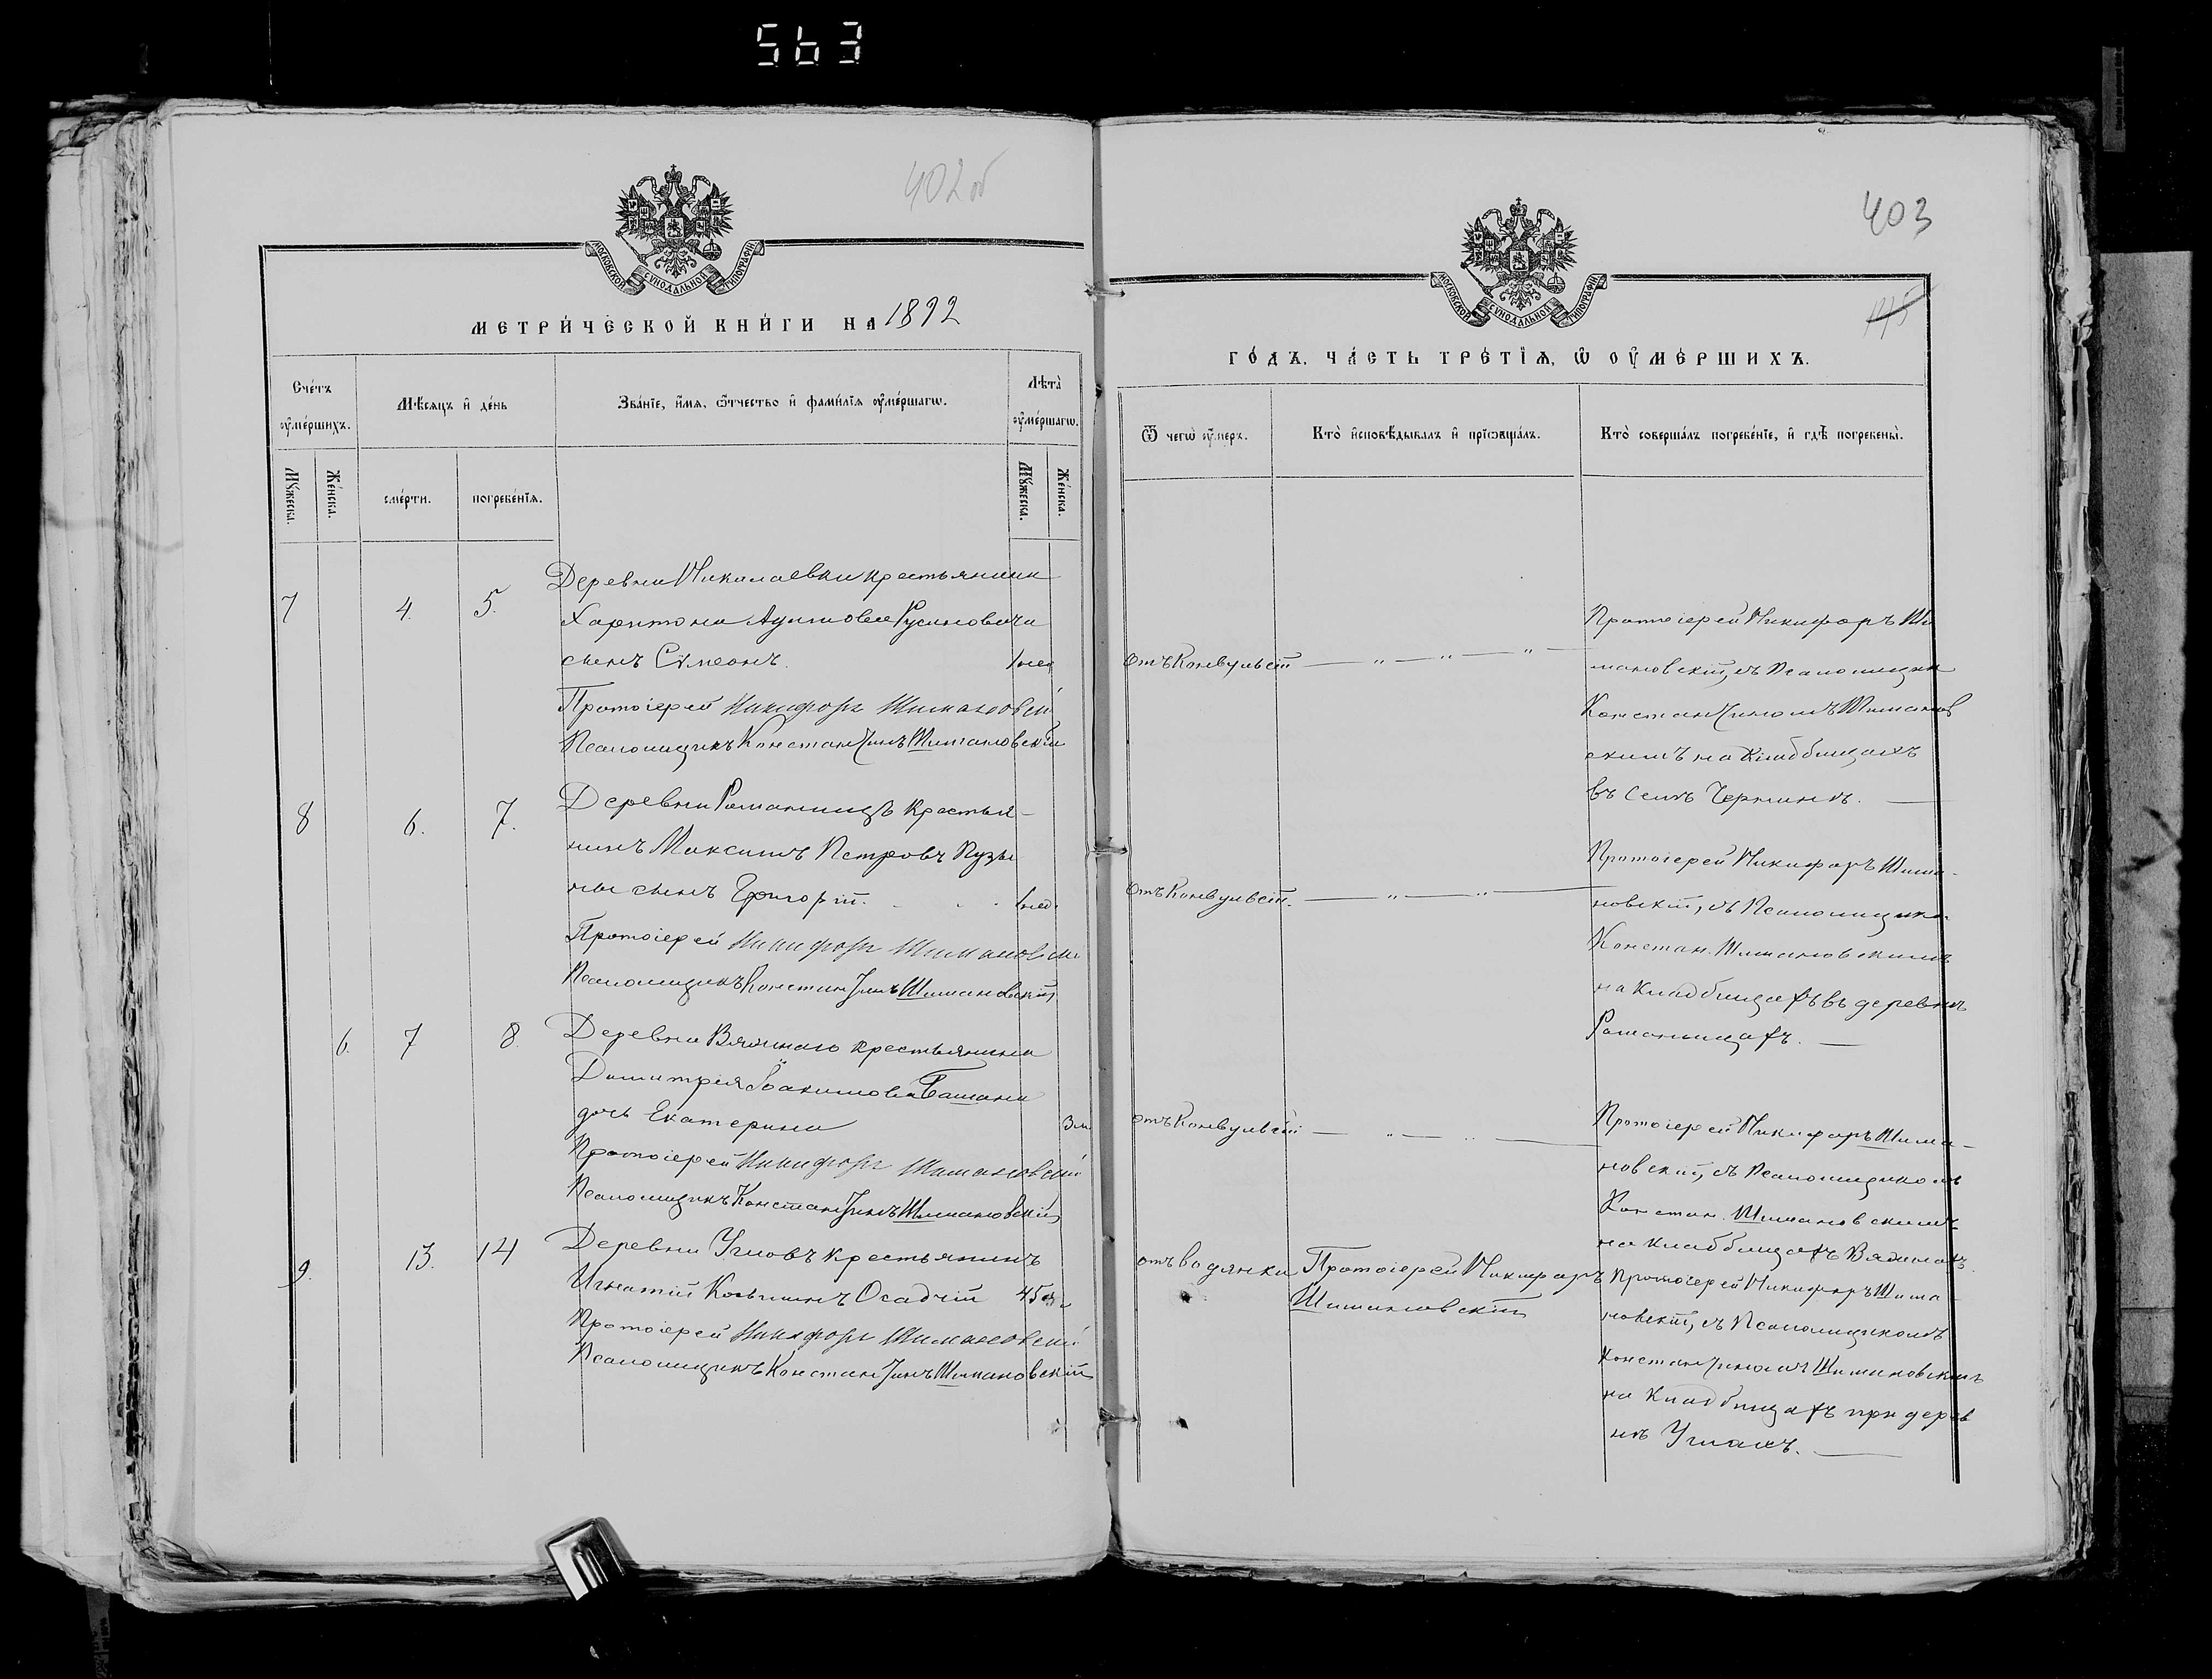 563
402 об
МОСКОВСКОЙ СѴНОДАЛЬНОЙ ТИПОГРАФІИ
МЕТРИ́ЧЕСКОЙ КНИ́ГИ НА 1892
Сче́тъ ᲂу҆ме́ршихъ.
Мѣ́сѧцъ и҆ де́нь
Зва́нїе, и҆́мѧ, ѻ҆́тчество и҆ фами́лїѧ ᲂу҆ме́ршагѡ.
Лѣта̀ ᲂу҆ме́ршагѡ.
Мꙋ́жеска.
Же́нска.
сме́рти.
погребе́нїѧ.
Мꙋ́жеска.
Же́нска.
7 4. 5. Деревни Николаевки крестьянина
Харитона Русиновича
сынъ Сѵмеонъ. 1 нед
Протоіерей Никифоръ Шимановскій
Псаломщикъ Константинъ Шимановскій
8 6. 7. Деревни Романищъ крестья-
нинъ Максимъ Петровъ Пузы
ны сынъ Григорій. 1 нед.
Протоіерей Никифоръ Шимановскій
Псаломщикъ Константинъ Шимановскій
6. 7 8. Деревни Вязинаго крестьянина
Димитрія Іоакимова
дочь Екатерина 3 м
Протоіерей Никифоръ Шимановскій
Псаломщикъ Константинъ Шимановскій
9. 13. 14 Деревни Угловъ крестьянинъ
Игнатій Косьминъ Осадчій 45
Протоіерей Никифоръ Шимановскій
Псаломщикъ Константинъ Шимановскій
403
175
МОСКОВСКОЙ СѴНОДАЛЬНОЙ ТИПОГРАФІИ
ГО́ДЪ. ЧА́СТЬ ТРЕ́ТЇѦ, Ѡ҆ ОУ҆МЕ́РШИХЪ.
Ѿ чегѡ̀ ᲂу҆́меръ.
Кто̀ и҆сповѣ́дывалъ и҆ прїѡбща́лъ.
Кто̀ соверша́лъ погребе́нїе, и҆ гдѣ̀ погребены̀.
отъ Конвульсій — „ — „ — „ —
Протоіерей Никифоръ Ши
мановскій, съ Псаломщикомъ
Константиномъ Шиманов
скимъ на Кладбищахъ
въ селѣ
отъ Конвульсій. — „ — „ —
Протоіерей Никифоръ Шима-
новскій, съ Псаломщикомъ
Констан. Шимановскимъ
на Кладбищахъ въ деревнѣ
Романищахъ. —
отъ Конвульсій — „ — „ —
Протоіерей Никифоръ Шима-
новскій, съ Псаломщикомъ
Констан. Шимановскимъ
на кладбищахъ
отъ водянки Протоіерей Никифоръ
Шимановскій
Протоіерей Никифоръ Шима
новскій, съ Псаломщикомъ
Константиномъ Шимановскимъ
на Кладбищахъ при дерев
нѣ Углахъ. —